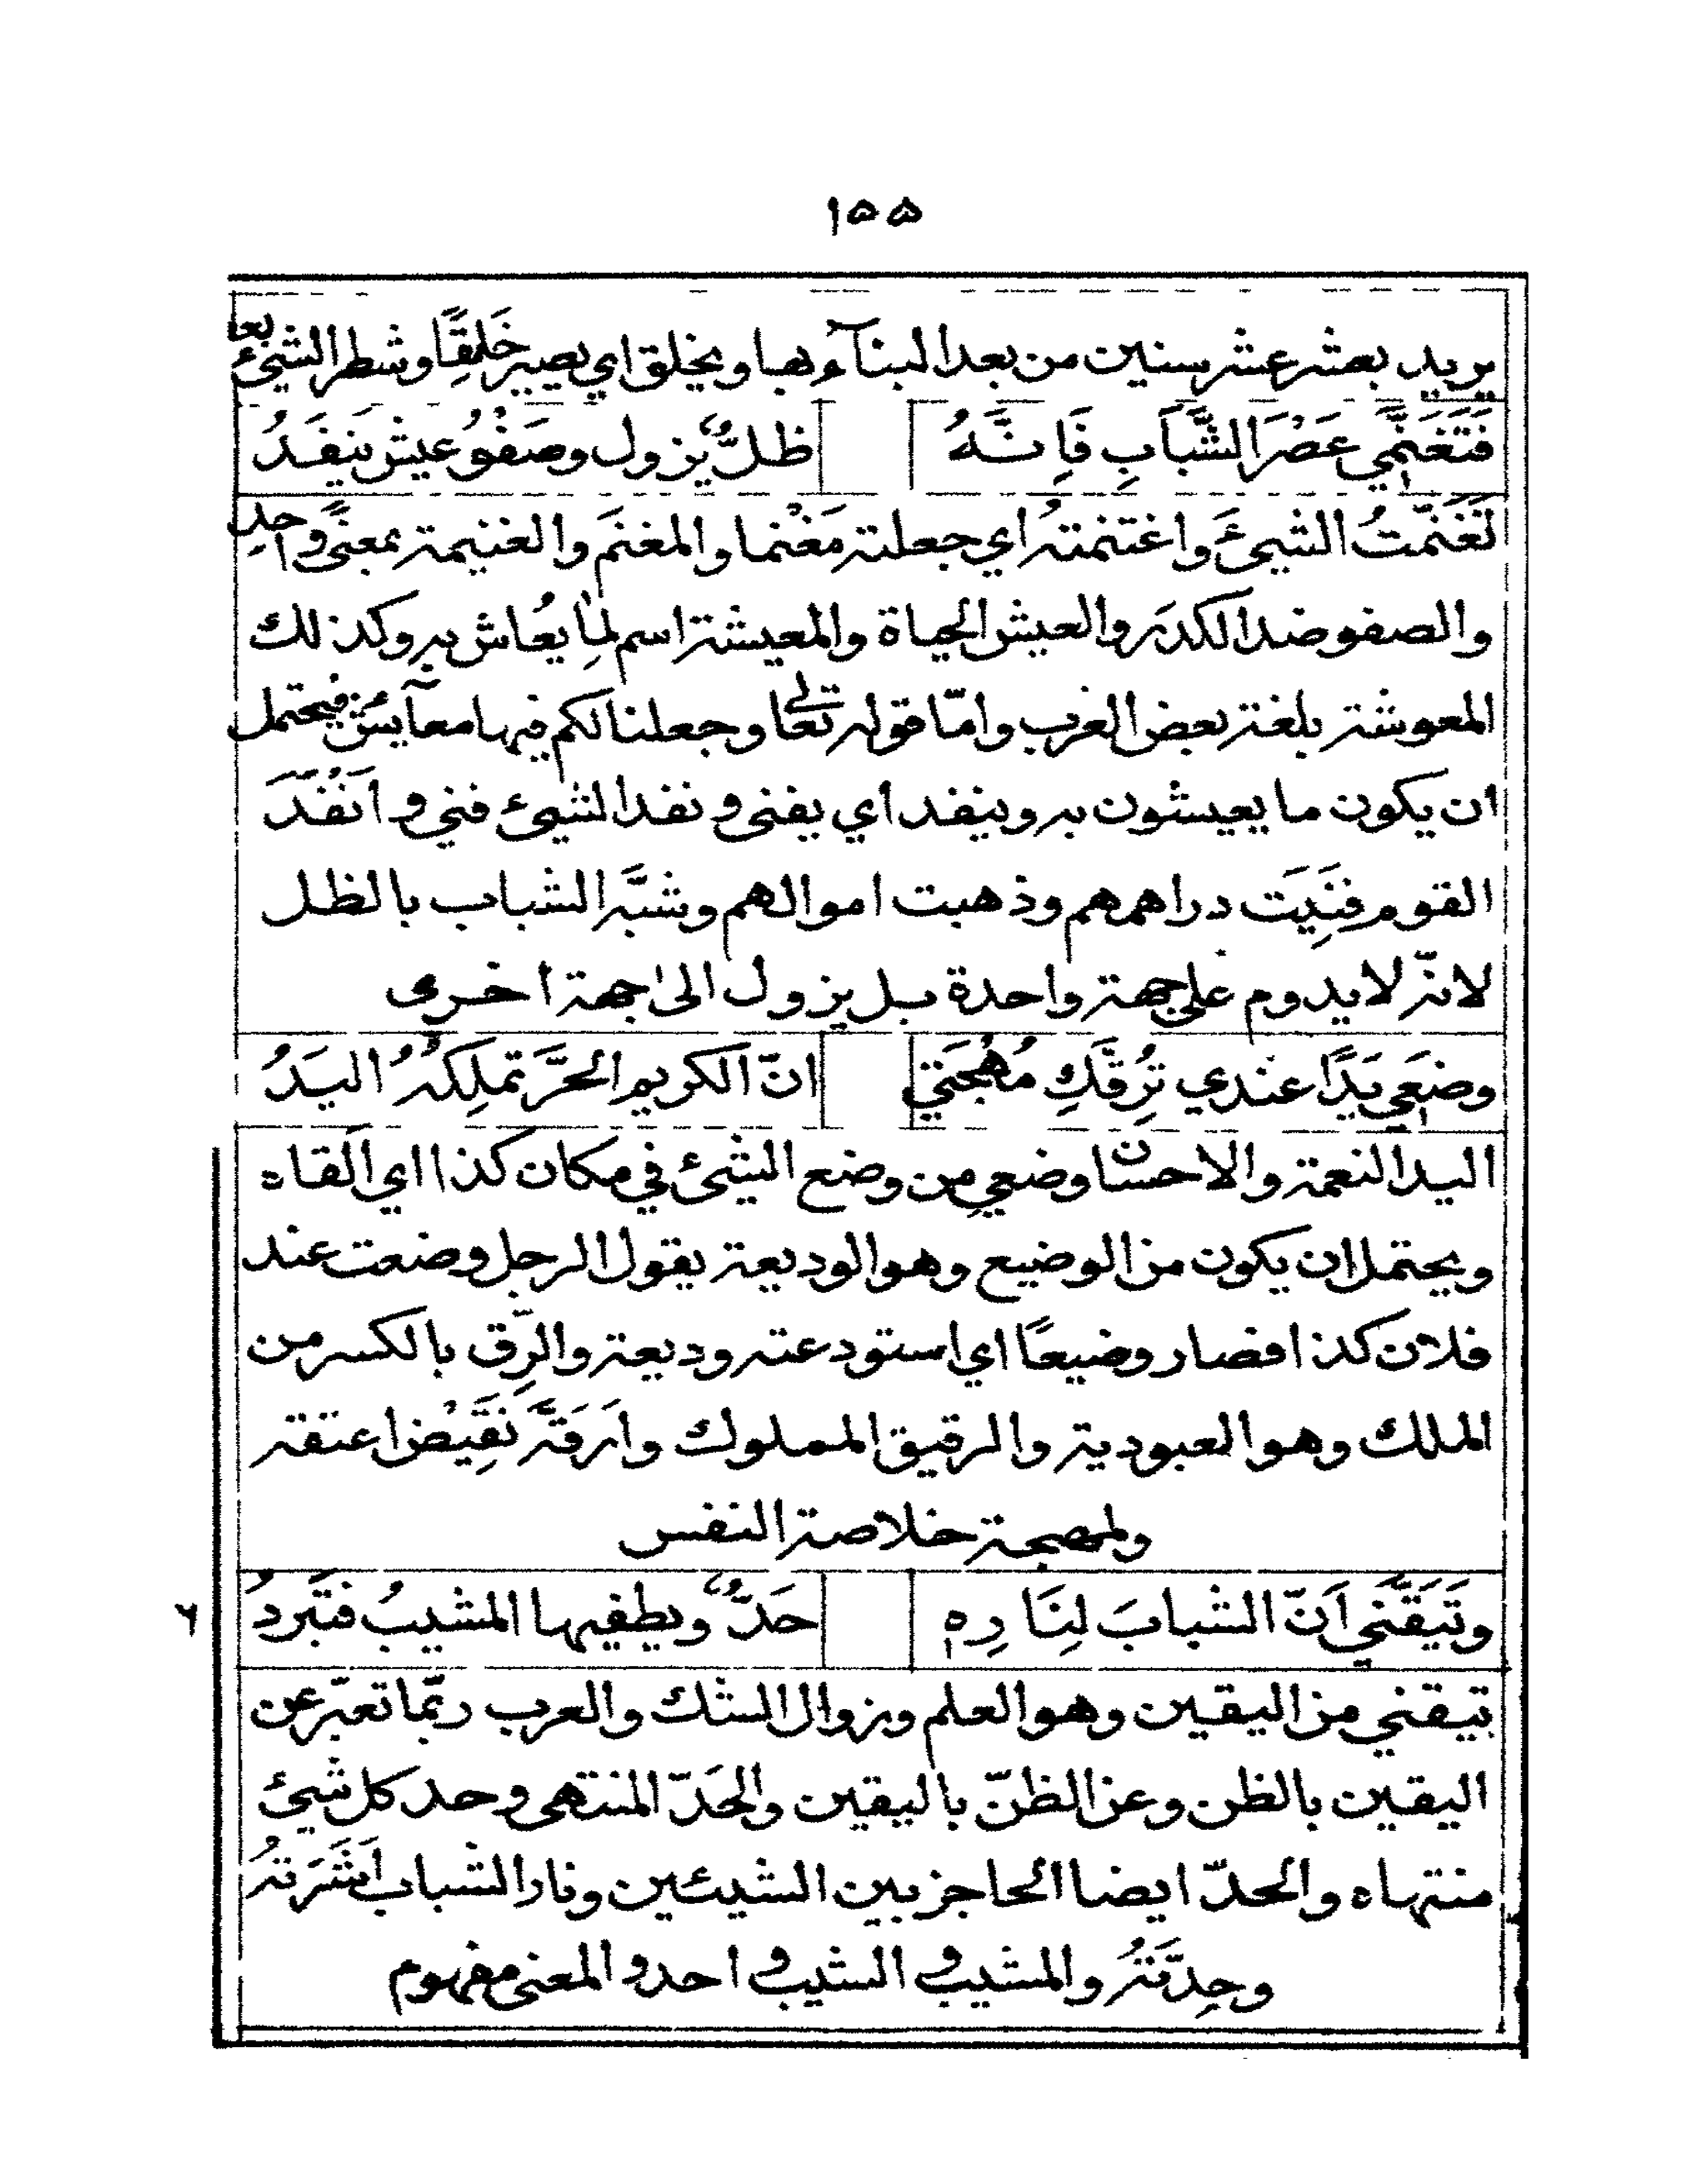 ١٥٥
يريد بعشر عشر سنين من بعد البنآء بها ويخلق اي يصير خَلِقًا وشطر الشيئ
فَتَغَنَّمي عَصْرَ الشَّبَابِ فَاِنَّهُ ظلٌّ يزول وصَفْوُ عيشٍ ينفَدُ
تَغَنَّمتُ الشيئَ واغتنمتهُ اي جعلته مَغْنما والمغنَم والغنيمة بمعنًى واحدٍ
والصفو ضد الكدَر والعيش الحياة والمعيشة اسم لِما يُعاش به وكذلك
المعوشة بلغة بعض العرب وامّا قوله تعالى وجعلنا لكم فيها معآيش فيحتمل
ان يكون ما يعيشون به وينفد اي يفنى ونفد الشيئ فني وانْفَدَ
القوم فَنِيَت دراهمهم وذهبت اموالهم وشبَّه الشباب بالظل
لانّه لا يدوم على جهة واحدة بل يزول الى جهة اخرى
وضَعي يَدًا عندي تُرِقَّكِ مُهْجَتي انّ الكريم الحرَّ تملِكهُ اليَدُ
اليد النعمة والاحسان وضعي مِن وضع الشيئ في مكان كذا اي القاه
ويحتمل ان يكون من الوضيع وهو الوديعة يقول الرجل وضعت عند
فلان كذا فصار وضيعًا اي استودعته وديعة والرِّق بالكسر من
الملك وهو العبودية والرقيق المملوك وارَقَّهُ نَقِيْض اعتقه
والمهجة خلاصة النفس
وتَيَقَّني اَنّ الشبابَ لِنَارِهِ حَدٌّ ويطفيها المشيبُ فتَبردُ
٦
تيقني من اليقين وهو العلم وزوال الشك والعرب ربّما تعبّر عن
اليقين بالظن وعن الظنّ باليقين والحَدّ المنتهى وحد كل شيئ
منتهاه والحدّ ايضا الحاجز بين الشيئين ونار الشباب اَشَرَتهُ
وحِدَّتهُ والمشيب والشيب واحد والمعنى مفهوم